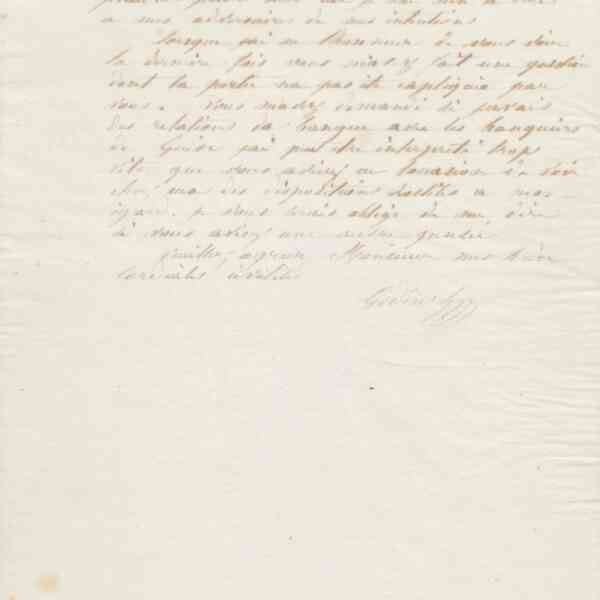 à mes adversaires de mes intentions
Lorsque j'ai eu l'honneur de vous voir
la dernière fois vous m'avez fait une question
dont la portée n'a pas été expliquée par
vous. Vous m'avez demandé si j'avais
des relations de banque avec les banquiers
de Guise j'ai peut être interprété trop
vite que vous aviez eu l'occasion de voir
chez eux des dispositions hostiles à mon
égard. je vous serais obligé de me dire
si vous aviez une autre pensée
Veuillez agréer Monsieur mes bien
cordiales civilités
Godin